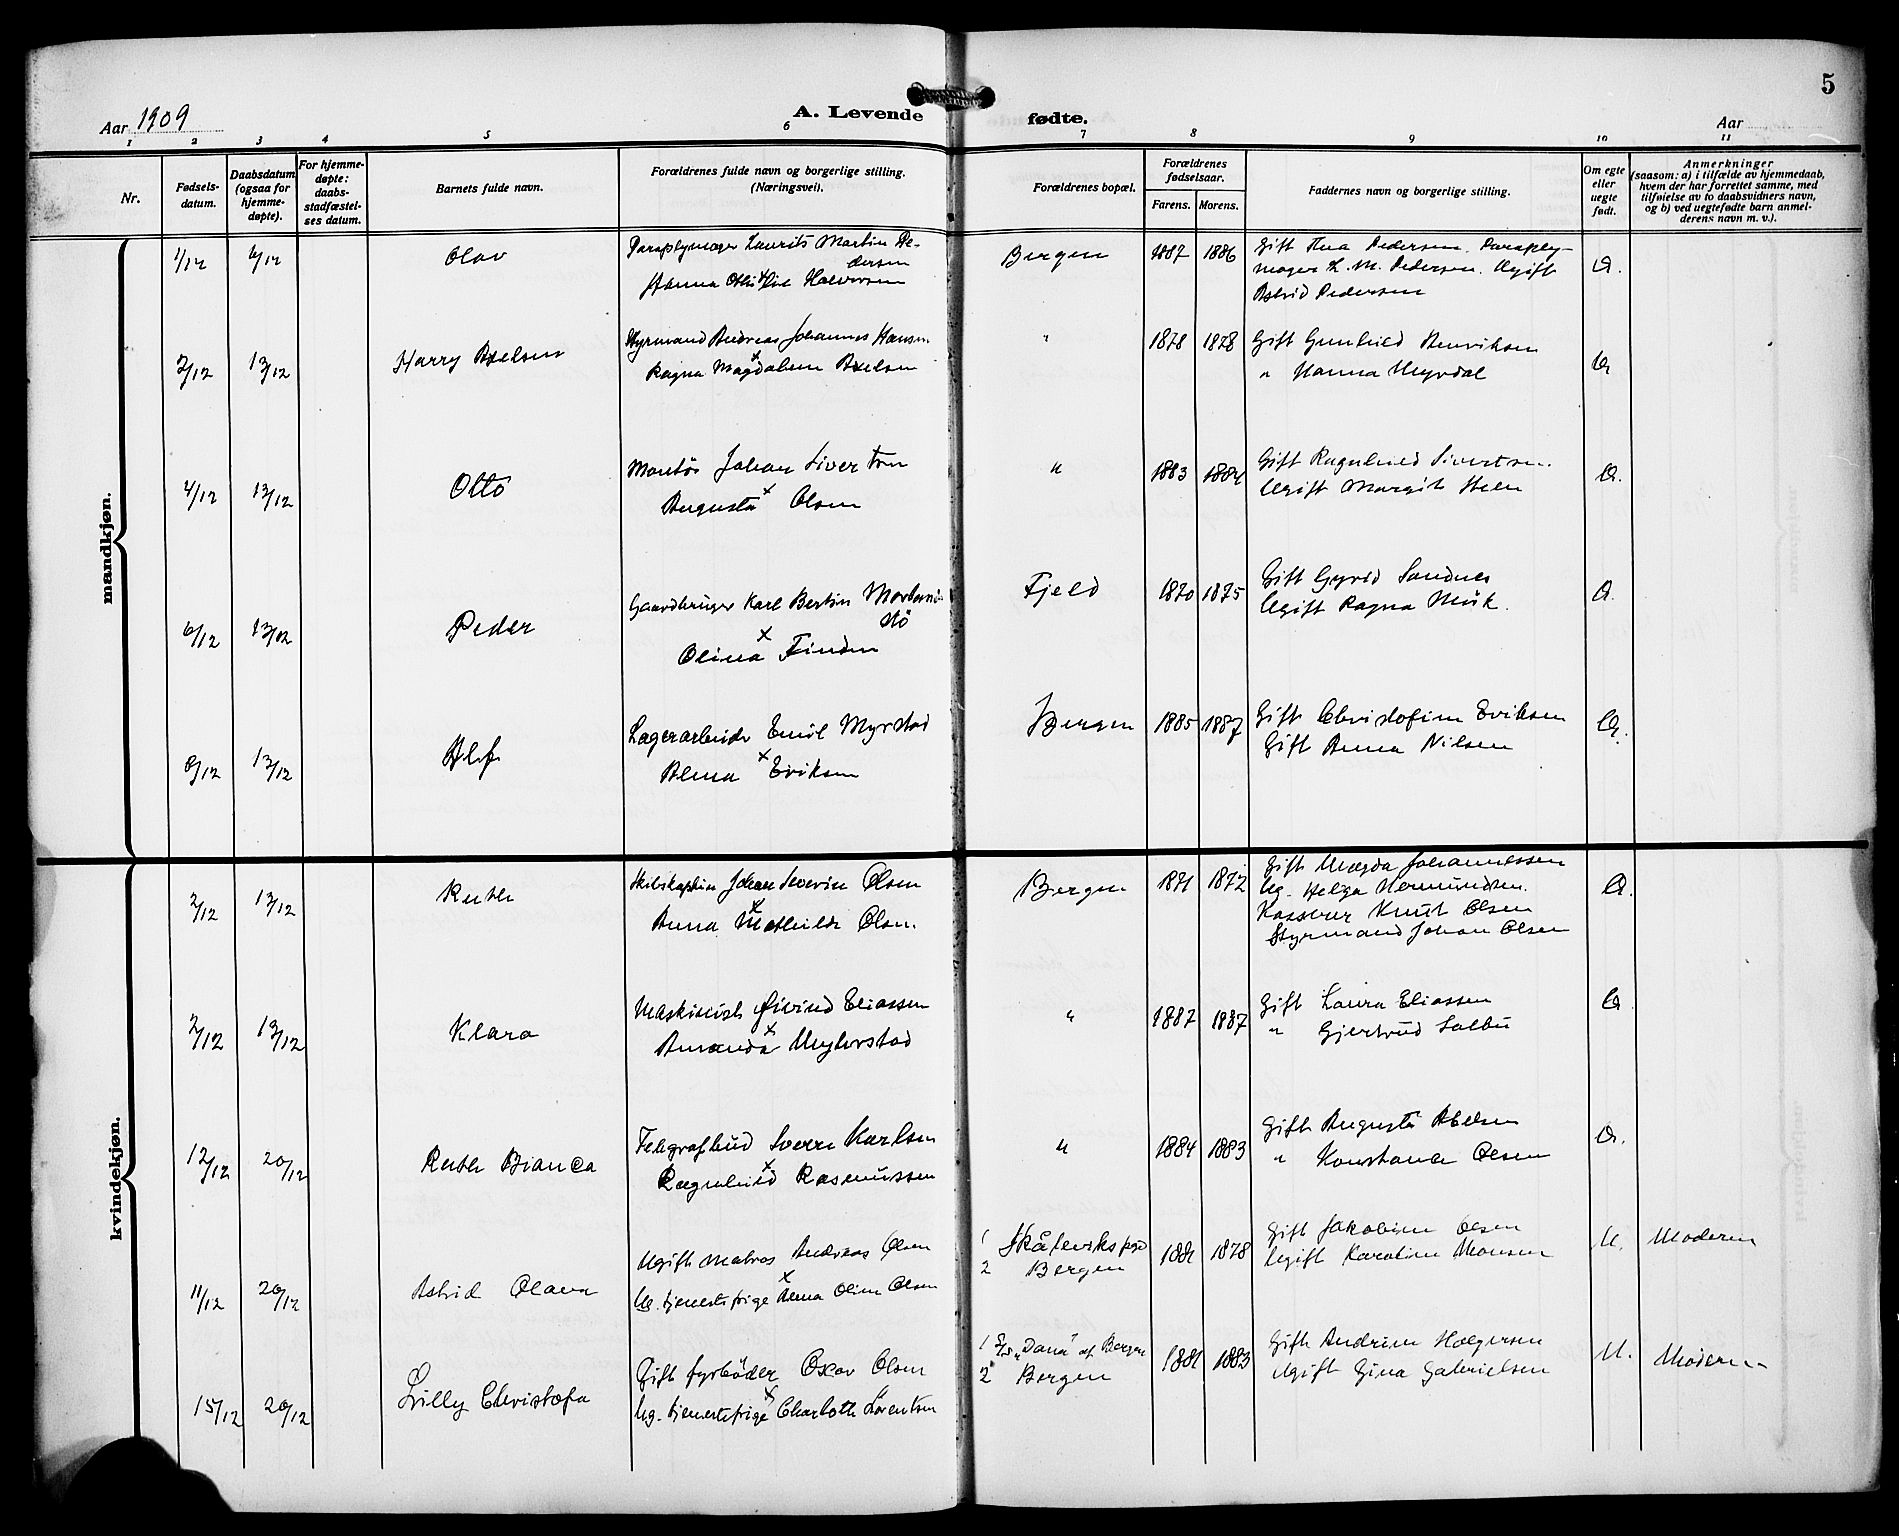 5
Aar 1909
A. Levende fødte.
Aar
1 2 3 4 5 6 7 8 9 10 11
Nr.
Fødsels-
datum.
Daabsdatum
(ogsaa for
hjemme-
døpte).
For hjemme-
døpte:
daabs-
stadfæstel-
ses datum.
Barnets fulde navn.
Forældrenes fulde navn og borgerlige stilling.
(Næringsvei).
Forældrenes bopæl.
Forældrenes
fødselsaar.
Farens. Morens.
Faddernes navn og borgerlige stilling.
Om egte
eller
uegte
født.
Anmerkninger
(saasom: a) i tilfælde av hjemmedaab,
hvem der har forrettet samme, med
tilføielse av to daabsvidners navn,
og b) ved uegtefødte barn anmel-
derens navn m. v.).
mandkjøn.
1/12 6/12 Olav
Paraplymager Laurits Martin Pe-
dersen
Hanna Otti Halvorsen
Bergen 1887 1886
Gift Thea Pedersen. Paraply-
mager L. M. Pedersen. Ugift
Astrid Pedersen
2/12 13/12 Harry Axelsen
Styrmand Andreas Johannes Hansen
x
Ragna Magdalene Axelsen
" 1878 1878
Gift Gunhild Henriksen
" Hanna Myrdal
4/12 13/12 Otto
Montör Johan Sivertsen
Augusta x Olsen
" 1883 1884
Gift Ragnhild Sivertsen.
Ugift Margit Steen
6/12 13/12 Peder
Gaardbruger Karl Bertin
x
Olina
Fjeld 1870 1875
Gift Gyrid Sandnes
Ugift Ragna
8/12 13/12 Alf
Lagerarbeider Emil Myrstad
Alma x Eriksen
Bergen 1885 1887
Gift Christofine Eriksen
Gift Anna Nilsen
kvindekjøn.
2/12 13/12 Ruth
Skibskaptein Johan Severin Olsen
x
Anna Mathilde Olsen.
Bergen 1871 1872
Gift Magda Johannessen
Ug. Helga Hermundsen.
Kasserer Knut Olsen
Styrmand Johan Olsen
2/12 13/12 Klara
Maskinist Øivind Eliassen
x
Amanda
" 1887 1887
Gift Laura Eliassen
" Gjertrud Salbu
12/12 20/12 Ruth Bianca
Telegrafbud Sverre Karlsen
x
Ragnhild Rasmussen
" 1884 1883
Gift Augusta
" Konstance Olsen
11/12 20/12 Astrid Olava
Ugift Matros Andreas Olsen
x
Ug. tjenestepige Anna Oline Olsen
1
2 Bergen
1881 1878
Gift Jakobine Olsen
Ugift Karoline Monsen
U. Moderen
15/12 20/12 Lilly Christofa
Gift fyrböder Oskar Olsen
x
Ug. tjenestepige Charlotte Lorentsen
1 S/S "Dana" af Bergen
2 Bergen
1881 1883
Gift Andrine Holgersen
Ugift Gina Gabrielsen
U. Moderen